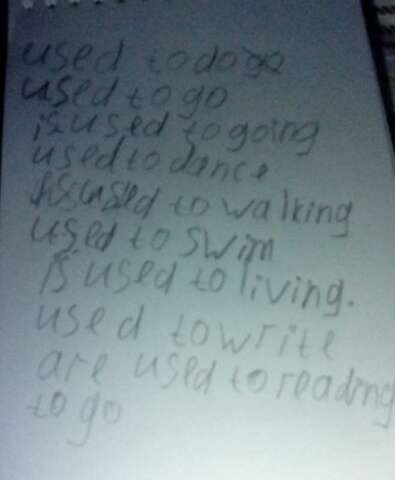 used to do
used to go
is used to going
used to dance
is used to walking
used to swim
is used to living.
used to write
are used to reading
to go